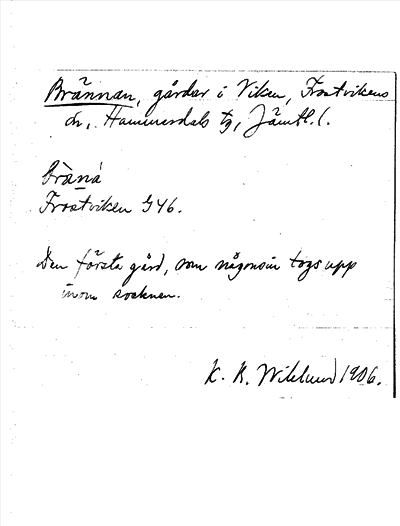 Brännan, gårdar i Viken, Frostvikens
sn, Hammerdals tg, Jämtl. l.
brànà
Frostviken J46.
Den första gård, som någonsin togs upp
inom socknen.
K. B. Wiklund 1906.